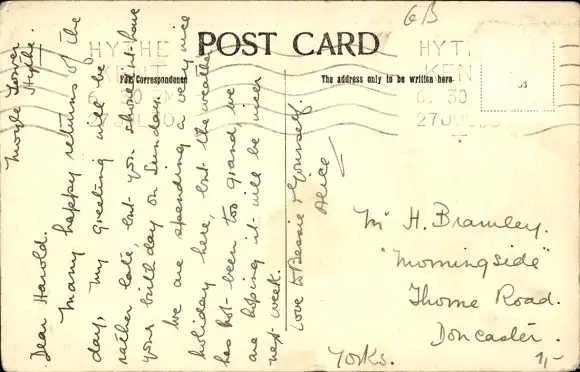 6B
POST CARD
HYTHE
KENT
6. 30 PM
27 JUL 30
HYTHE
KENT
6. 30
27 JUL
For Correspondence
The address only to be written here
Moyle Tower
Hythe.
Dear Harold.
Many happy returns of the
day, my greeting will be
rather late, but you should not have
your birthday on Sunday.
We are spending a very nice
holiday here, but the weather
has not been too grand, we
are hoping it will be nicer
next week.
Love to Bessie & Yourself.
Alice
Mr H. Bramley.
"Morningside"
Thorne Road.
Doncaster.
Yorks.
1/-